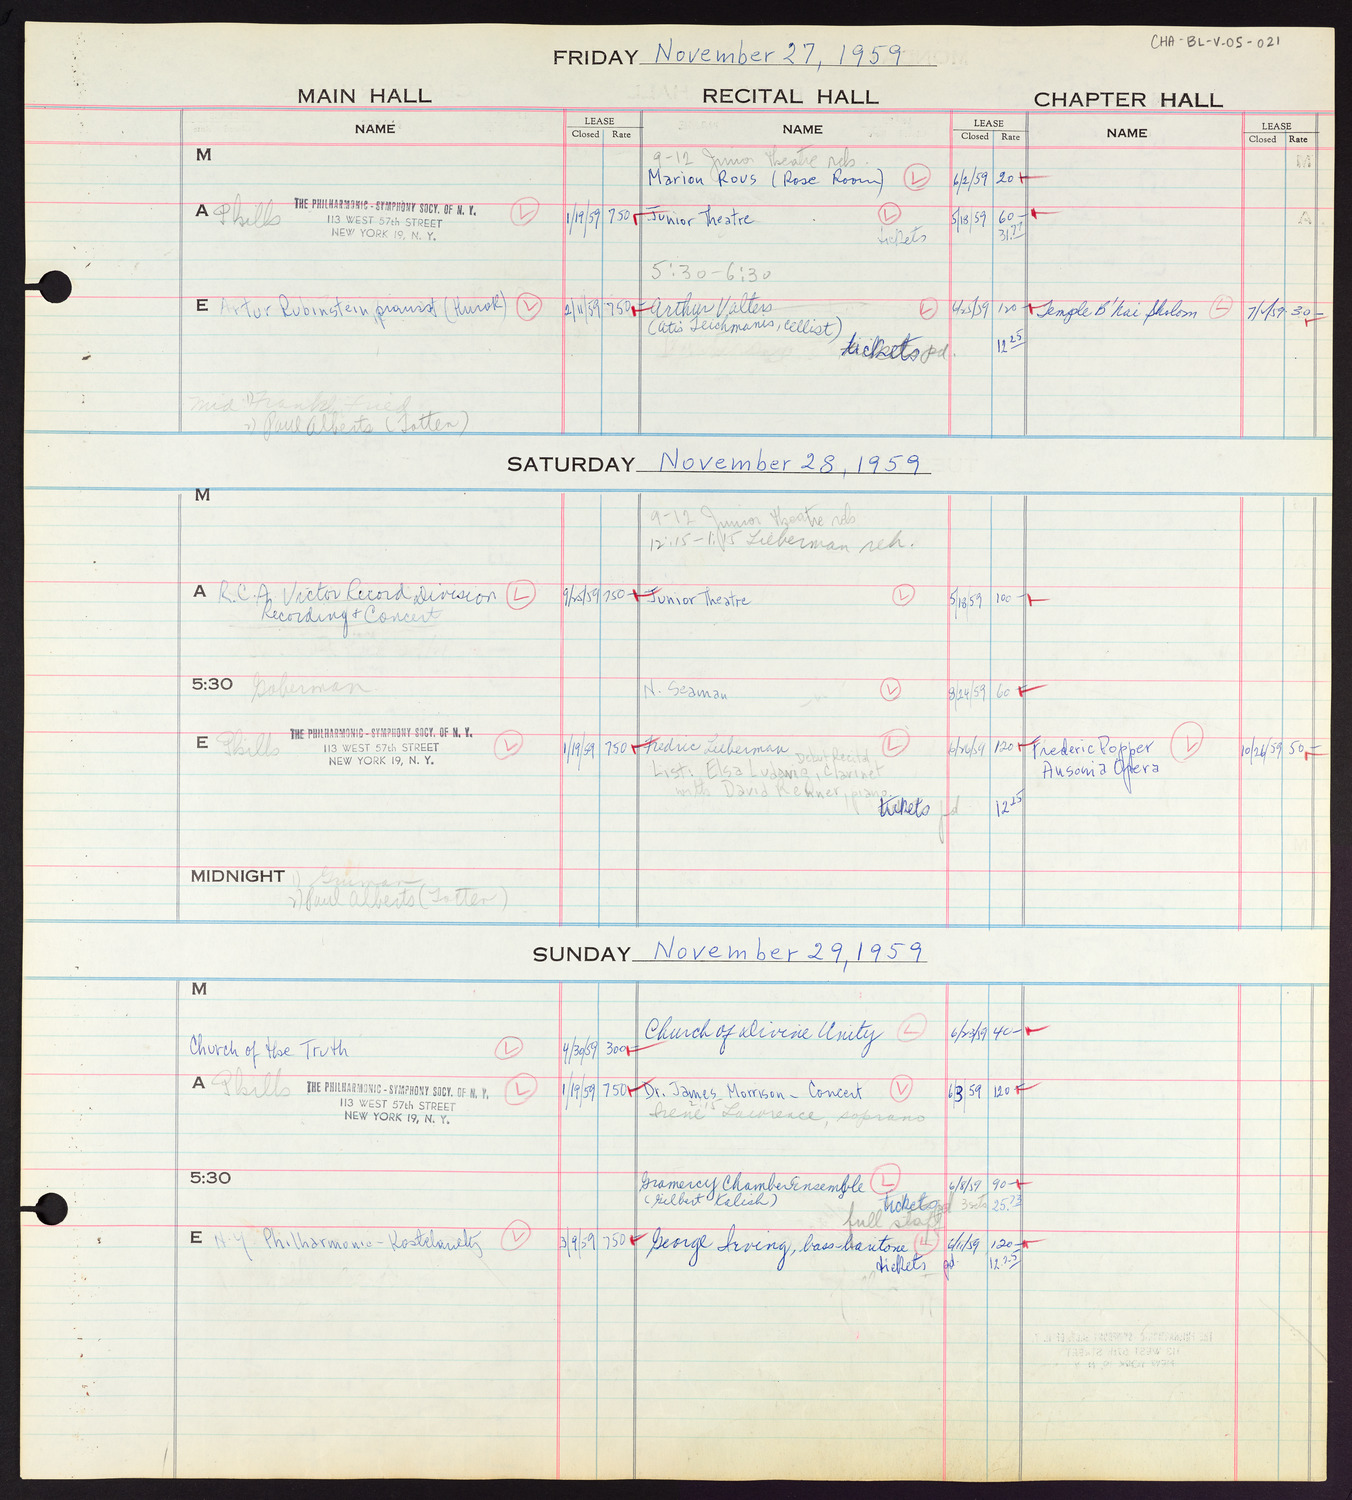 CHA-BL-V-05-021
FRIDAY November 27, 1959
MAIN HALL
RECITAL HALL
CHAPTER HALL
NAME
LEASE
Closed Rate
NAME
LEASE
Closed Rate
NAME
LEASE
Closed Rate
M
9-12 Junior theatre reh.
Marion Rous (Rose Room) L 6/2/59 20-
A Phills THE PHILHARMONIC-SYMPHONY SOCY. OF N. Y. L 1/19/59 750
113 WEST 57th STREET
NEW YORK 19, N. Y.
Junior Theatre L 5/18/59 60-
tickets
5:30-6:30
E Artur Rubinstein, pianist (Hurok) L 2/11/59 750-
Arthur Valters L 4/23/59 120-
(Atis Teichmanis, cellist)
tickets pd. 12.25
Temple B'nai Sholom L 30-
Mid 1)
2) Paul Alberts (Totten)
SATURDAY November 28, 1959
M
9-12 Junior theatre reh
12:15-1:15 Lieberman reh.
A R.C.A. Victor Record Division L 9/25/59 750-
Recording & Concert
Junior Theatre L 5/18/59 100-
5:30 Goberman
N. Seaman L 8/24/59 60-
E Phills THE PHILHARMONIC-SYMPHONY SOCY. OF N. Y. L 1/19/59 750
113 WEST 57th STREET
NEW YORK 19, N. Y.
Fredric Lieberman L 6/26/59 120-
Debut Recital
List: Elsa Ludwig, clarinet
with David Renner, piano
tickets pd 12.25
Frederic Popper L 10/26/59 50-
Ausonia Opera
MIDNIGHT 1)
2) Paul Alberts (Totten)
SUNDAY November 29, 1959
M
Church of the Truth L 4/30/59 300-
Church of Divine Unity L 6/23/59 40-
A Phills THE PHILHARMONIC-SYMPHONY SOCY. OF N. Y. L 1/19/59 750
113 WEST 57th STREET
NEW YORK 19, N. Y.
Dr. James Morrison - Concert L 6/3/59 120-
Irene Lawrence, soprano
5:30
Gramercy Chamber Ensemble L 6/8/59 90-
(Gilbert Kalish) tickets pd 3 sets 25.73
full staff
E N.Y. Philharmonic-Kostelanetz L 3/9/59 750
George Irving, bass-baritone L 6/11/59 120-
tickets pd. 12.25